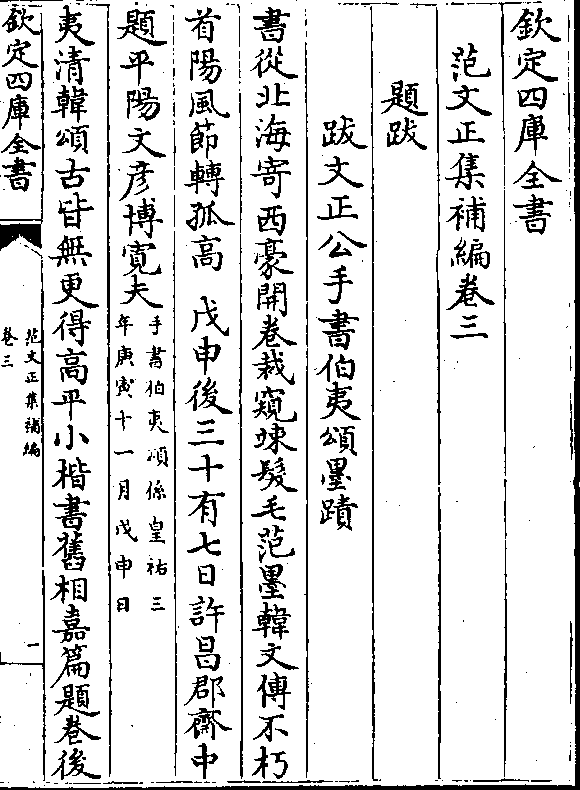 欽定四庫全書
范文正集補編卷三
題跋
跋文正公手書伯夷頌墨蹟
書從北海寄西豪開卷裁窺竦髮毛范墨韓文傳不朽
首陽風節轉孤高　戊申後三十有七日許昌郡齋中
題平陽文彦博寛夫手書伯夷頌係皇祐三
年庚寅十一月戊申日
夷清韓頌古皆無更得高平小楷書舊相嘉篇題巻後
欽定四庫全書
范文正集補編
卷三
一